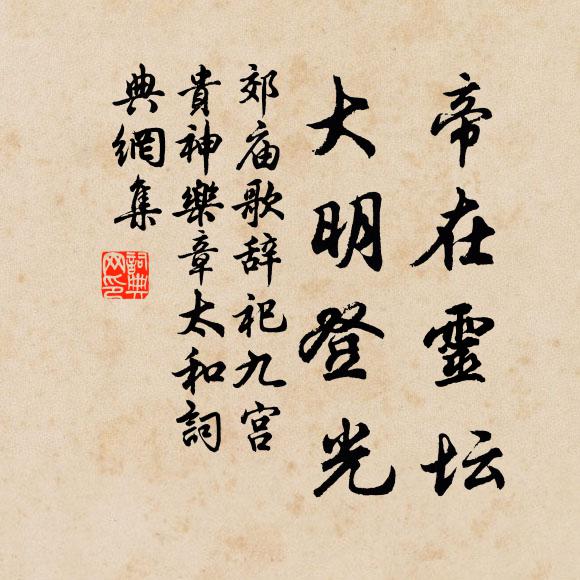 帝在靈坛
大明登光
郊庙歌辞祀九宫
貴神樂章太和詞
典網集
詞典
网印